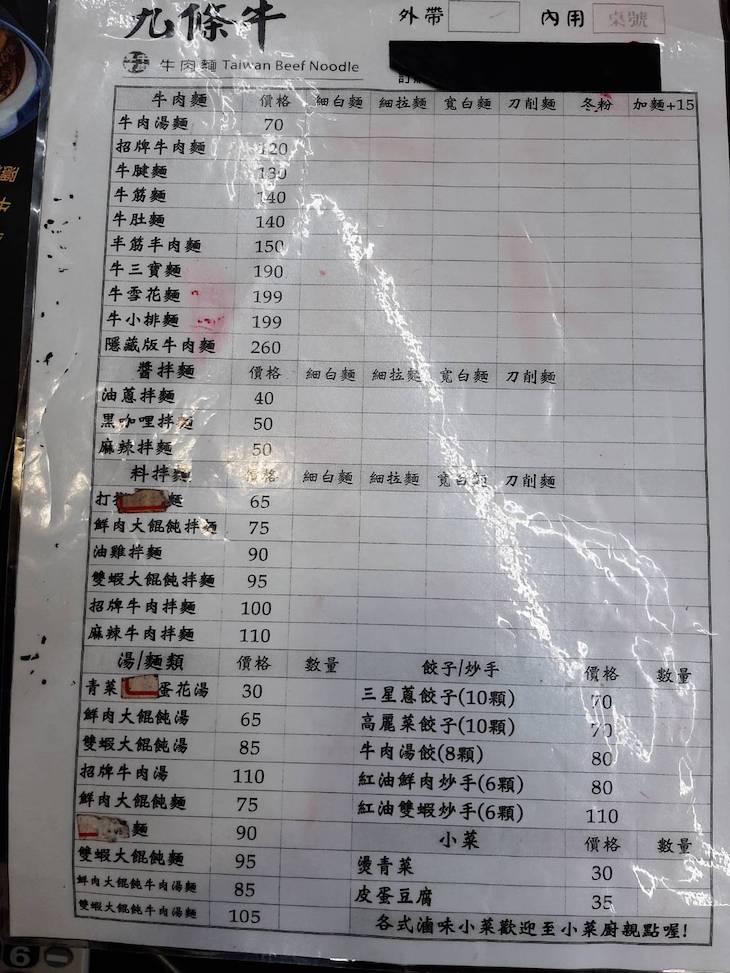 九條牛 外帶 內用 桌號
牛肉麵 Taiwan Beef Noodle
牛肉麵 價格 細白麵 細拉麵 寬白麵 刀削麵 冬粉 加麵+15
牛肉湯麵 70
招牌牛肉麵 120
牛腱麵 130
牛筋麵 140
牛肚麵 140
半筋半肉麵 150
牛三寶麵 190
牛雪花麵 199
牛小排麵 199
隱藏版牛肉麵 260
醬拌麵 價格 細白麵 細拉麵 寬白麵 刀削麵
油蔥拌麵 40
黑咖哩拌麵 50
麻辣拌麵 50
料拌麵 價格 細白麵 細拉麵 寬白麵 刀削麵
打 麵 65
鮮肉大餛飩拌麵 75
油雞拌麵 90
雙蝦大餛飩拌麵 95
招牌牛肉拌麵 100
麻辣牛肉拌麵 110
湯/麵類 價格 數量 餃子/炒手 價格 數量
青菜 蛋花湯 30 三星蔥餃子(10顆) 70
鮮肉大餛飩湯 65 高麗菜餃子(10顆) 70
雙蝦大餛飩湯 85 牛肉湯餃(8顆) 80
招牌牛肉湯 110 紅油鮮肉炒手(6顆) 80
鮮肉大餛飩麵 75 紅油雙蝦炒手(6顆) 110
麵 90 小菜 價格 數量
雙蝦大餛飩麵 95 燙青菜 30
鮮肉大餛飩牛肉湯麵 85 皮蛋豆腐 35
雙蝦大餛飩牛肉湯麵 105 各式滷味小菜歡迎至小菜廚親點喔!
6